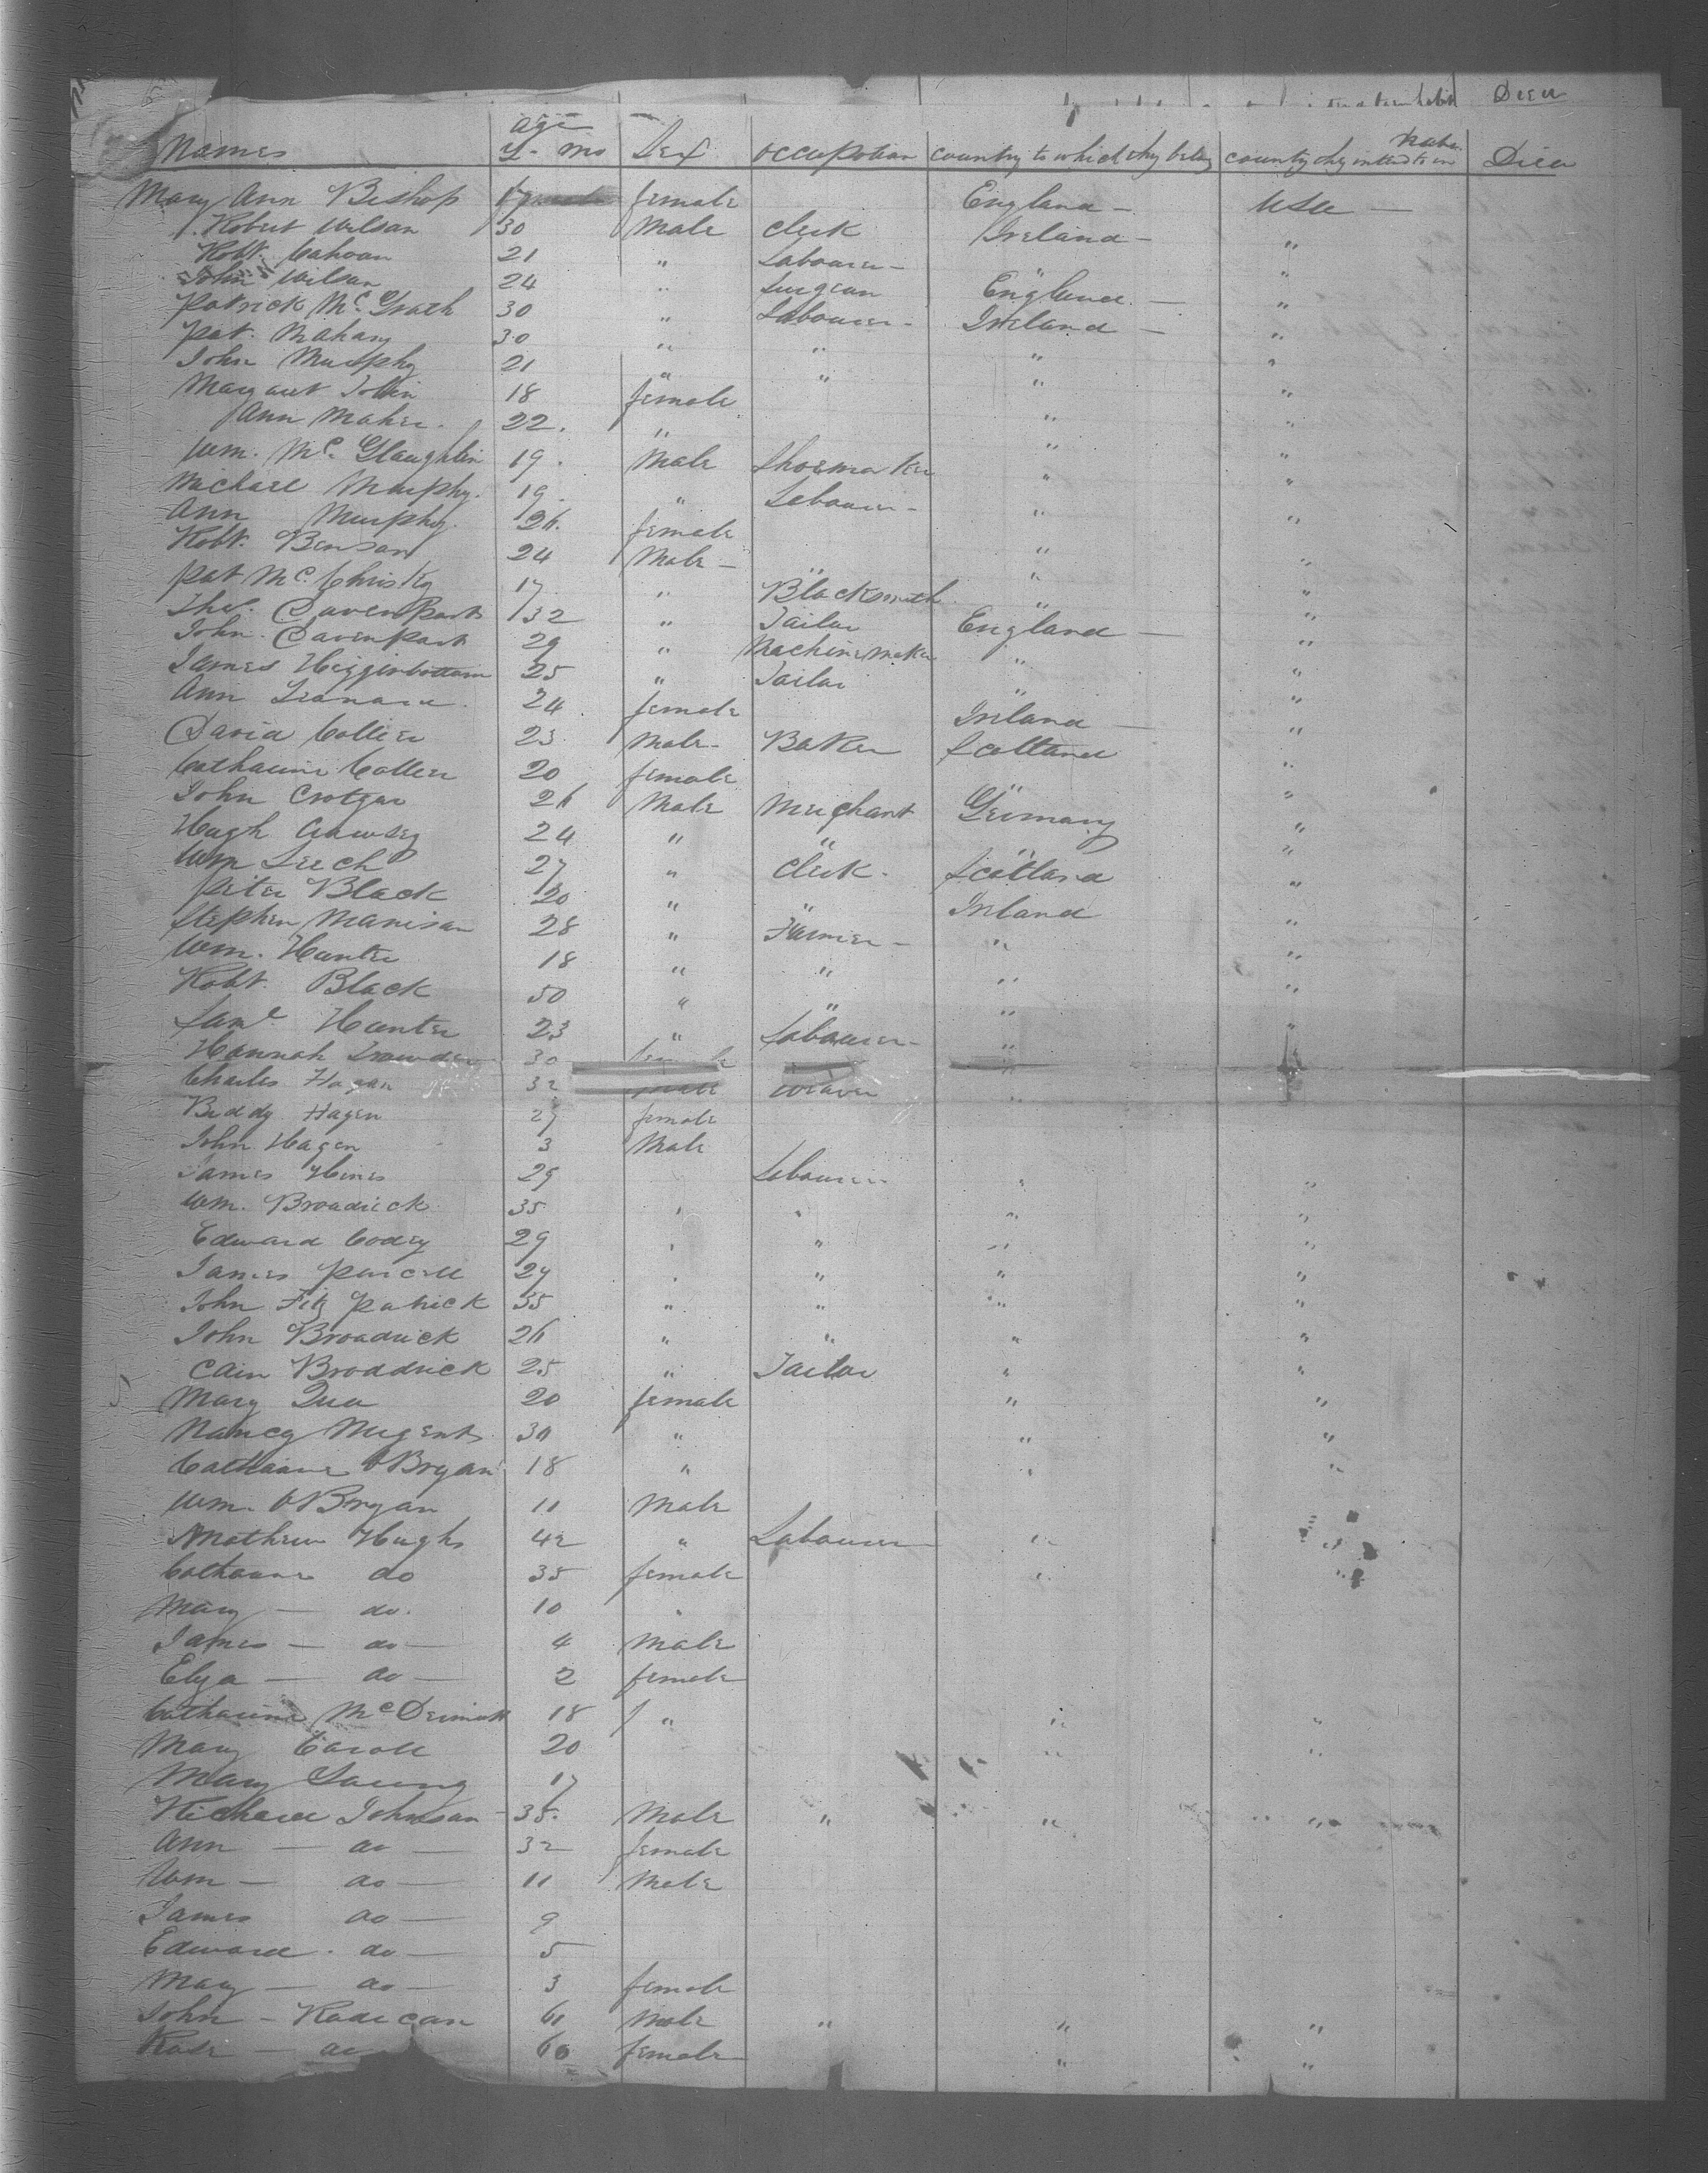 Died
Names age y - mo Sex occupation country to which they belong country they intend to inhabit Died
Mary Ann Bishop 17 female England - USA -
Robert Wilson 30 Male Clerk Ireland - "
Robt. Cahoon 21 " Labourer - " "
John Wilson 24 " Surgeon England - "
Patrick Mc Grath 30 " Labourer - Ireland - "
Pat. Mahany 30 " " " "
John Murphy 21 " " " "
Margaret Tobin 18 female " "
Ann Maher. 22. " " "
Wm. Mc Glaughlin 19. Male Shoemaker " "
Michael Murphy. 19. " Labourer - " "
Ann Murphy. 26. female " "
Robt. Benson 24 Male - " " "
Pat Mc Chrisky 17 " Blacksmith " "
Thos. Davenport 32 " Tailor England - "
John Davenport 29 " Machinemaker " "
James Higginbottom 25 " Tailor " "
Ann Leonard. 24 female Ireland - "
David Collier 23 Male - Baker Scotland "
Catharine Collier 20 female " "
John 26 Male Merchant Germany "
Hugh 24 " " " "
Wm Leech 27 " Clerk - Scotland "
Peter Black 20 " " Ireland "
Stephen Manison 28 " Farmer - " "
Wm. Hunter 18 " " " "
Robt. Black 50 " " " "
Saml Hunter 23 " Labourer - " "
Hannah 30 female "
Charles Hagan 32 male weaver "
Biddy Hagen 27 female
John Hagen 3 Male
James Hines 29 Labourer " "
Wm. Broadrick 35 " " " "
Edward Codey 29 " " " "
James Purcell 27 " " " "
John Fitz Patrick 35 " " " "
John Broadrick 26 " " " "
Cain Broddrick 25 " Tailor " "
Mary Qua 20 female " "
Nancy Nugent 30 " " "
Catharine OBryan 18 " " "
Wm. OBryan 11 Male
Mathew Hughs 42 " Labourer "
Catharine do 35 female "
Mary - do. 10 "
James - do - 4 Male
Elza - do - 2 female
Catharine Mc Dermott 18 " " "
Mary Caroll 20 " "
Mary Young 17
Richard Johnson - 35. Male " " "
Ann - do - 32 female
Wm - do - 11 Male
James do - 9
Edward. do - 5
Mary - do - 3 female
John - Radican 61 Male " " "
Rose - do 60 female " "